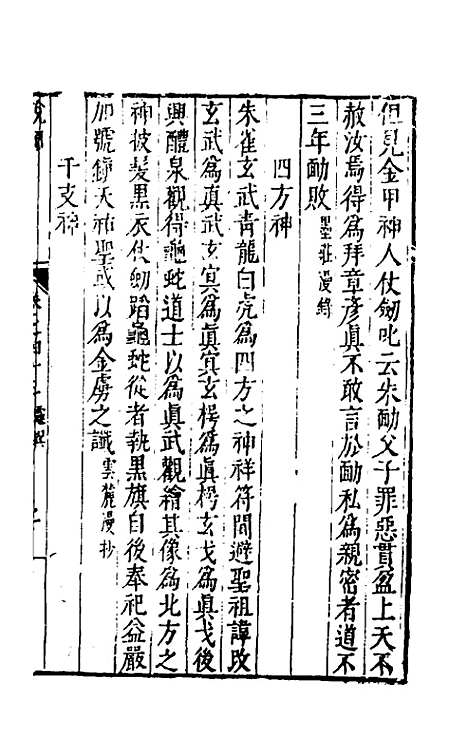 但見金甲神人仗劒叱云朱勔父子罪惡貫盈上天不
赦汝焉得爲拜章彦眞不敢言於勔私爲親密者道不
三年勔敗墨莊漫錄
四方神
朱雀玄武青龍白虎爲四方之神祥符間避聖祖諱改
玄武爲真武玄冥爲眞冥玄枵爲眞枵玄戈爲眞戈後
興醴泉觀得龜蛇道士以爲眞武觀繪其像爲北方之
神被髮黑衣仗劒蹈龜蛇從者執黑旗自後奉祀益嚴
加號鎮天神聖或以爲金虜之讖雲麓漫抄
干支神